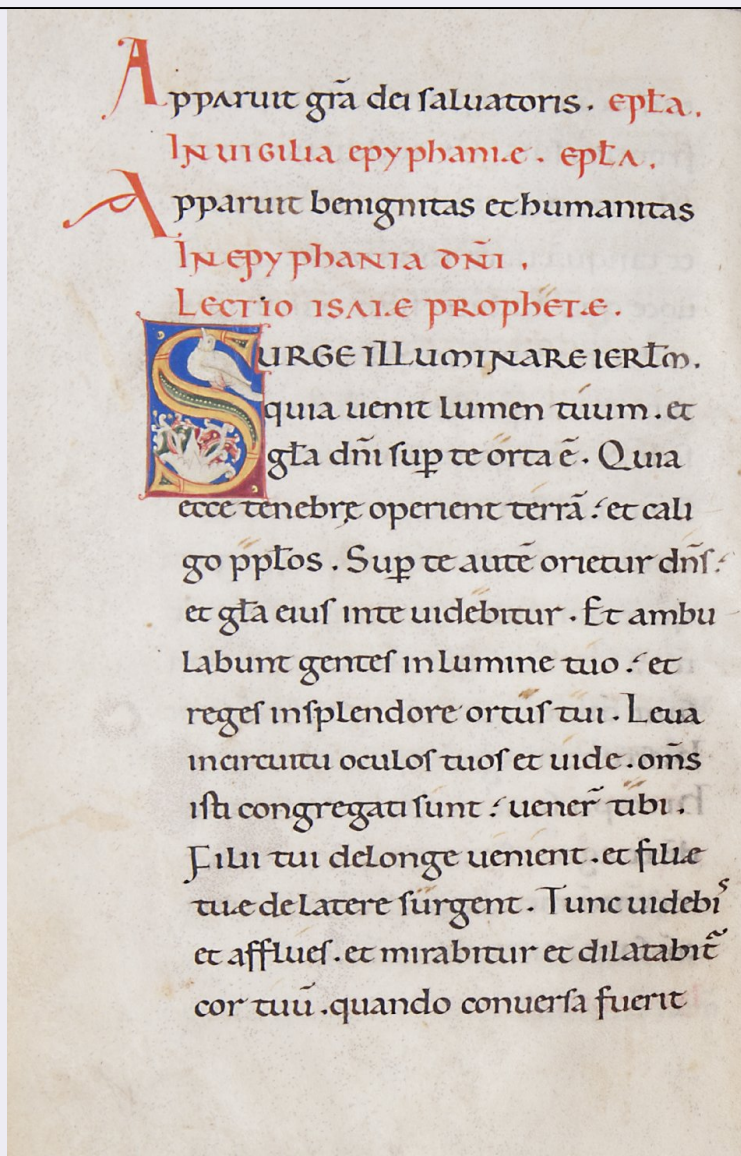 Apparuit gr̄a dei saluatoris. epł̄a.
In uigilia epyphaniæ. epł̄a.
Apparuit benignitas et humanitas
In epyphania dn̄i.
Lectio isaiæ prophetæ.
SURGE ILLUMINARE IERŁM̄.
quia uenit lumen tuum. et
gł̄a dn̄i sup̄ te orta ē. Quia
ecce tenebrę operient terrā: et cali
go ppł̄os. Sup̄ te autē orietur dn̄s:
et gł̄a eius inte uidebitur. Et ambu
labunt gentes in lumine tuo: et
reges insplendore ortus tui. Leua
incircuitu oculos tuos et uide. om̄s
isti congregati sunt: uener̄ tibi.
Filii tui delonge uenient. et filiæ
tuæ de latere surgent. Tunc uidebiˢ
et afflues. et mirabitur et dilatabit̄
cor tuū. quando conuersa fuerit